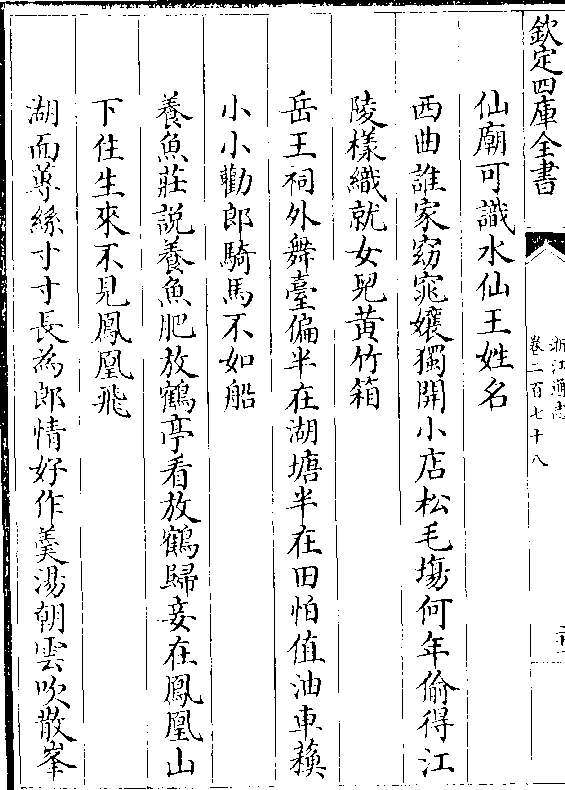 欽定四庫全書
浙江通志
卷二百七十八
仙廟可識水仙王姓名
西曲誰家窈窕孃獨開小店松毛塲何年偷得江
陵樣織就女兒黄竹箱
岳王祠外舞臺偏半在湖塘半在田怕值油車蘓
小小勸郎騎馬不如船
養魚莊説養魚肥放鶴亭看放鶴歸妾在鳳凰山
下住生來不見鳳凰飛
湖面蓴絲寸寸長為郎情好作羮湯朝雲吹散峯